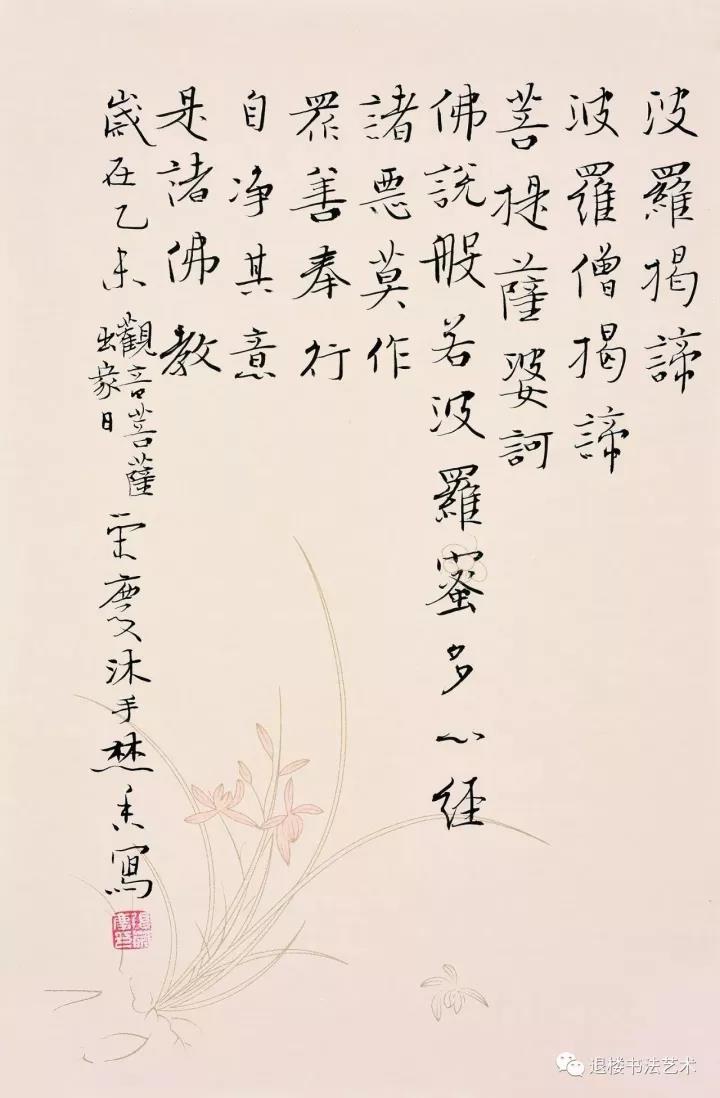 波羅揭諦
波羅僧揭諦
菩提薩婆訶
佛説般若波羅蜜多心経
諸惡莫作
眾善奉行
自净其意
是諸佛教
歲在乙未觀音菩薩
出家日
慶沐手焚香寫
退楼书法艺术